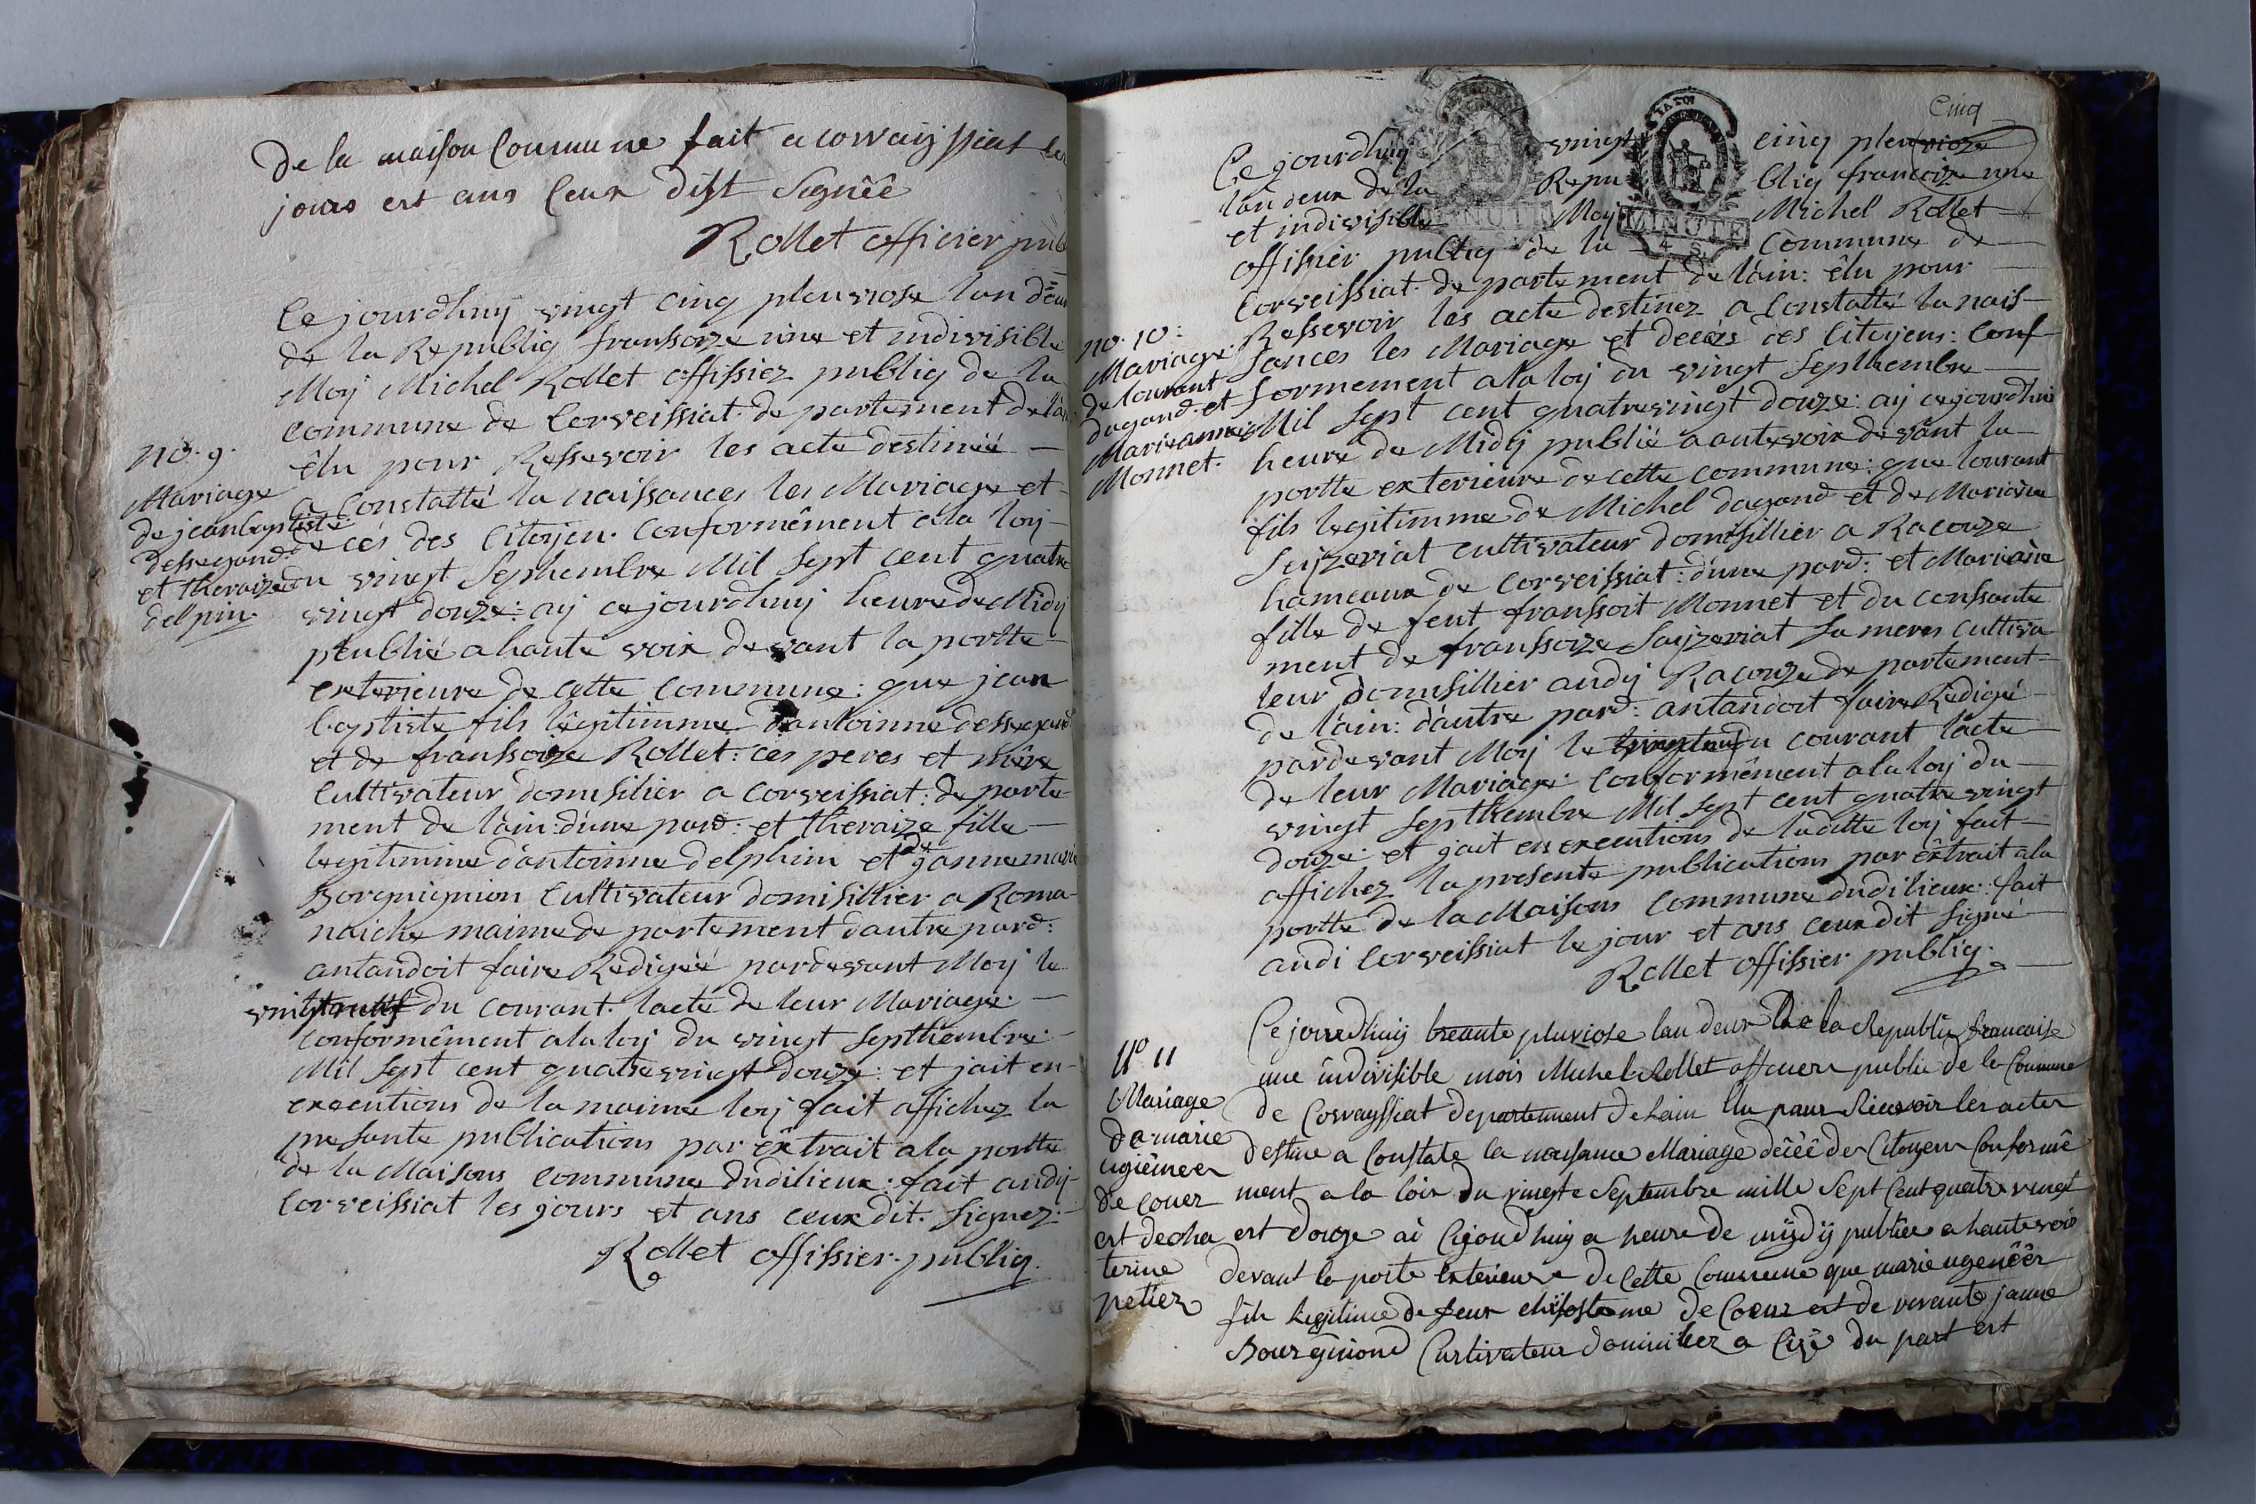 de la maison Commune fait a corvaissiat les
jours est ans Ceux dist Signéé
Rollet officier pub
Ce jourdhuy vingt Cinq pleuviose lan deux
de la Republiq franssoize une et indivisible
Moy Michel Rollet offissiez publiq de la
commune de Corveissiat departement de lain
êlu pour Ressevoir les acte destiniés
a Constatté la naissances les Mariage et
decés des Citoyen. Conformêment ala loy
du vingt Septhembre Mil Sept cent quatre
vingt douze: aij cejourdhuy heure de Midy
peublié a haute voix devant la portte
exterieure de cette commune: que jean
baptiste fils lêgitimme dantoinne dessegand
et de franssoize Rollet: ces peres et mére
Cultivateur domisilier a corveissiat: departe
ment de lain: dune pard: et theraize fille
legitimme dantoinne delphin et de jannemarie
Borgnignion Cultivateur domisillier a Roma-
naiche maime departement dautre pard:
antandoit faire Redigéé pardevant Moy le
vingtneuf du courant. lacte de leur Mariage:
conformêment ala loy du vingt septhembre
Mil Sept cent quatrevingt douze: et jait en
executions de la maime loy fait affichez la
presante publications par êxtrait ala portte
de la Maisons commune dudilieux: fait audy
Corveissiat les jours et ans ceux dit. Signez:
Rollet offissier publiq.
no. 9.
Mariage
de jeanbaptiste
dessegand
et theraize
delpin.
Cinq
Ce jourdhuy vingt cinq pleuvioze
lan deux de la Republiq francoize une
et indivisible Moy Michel Rollet
offissier publiq de la Commune de
MINUTE
MINUTE
4 S.
Corveissiat departement de lain: êlu pour
Ressevoir les acte destinez a Constatté la nais-
sances les Mariage et decés des Citoyens: Conf-
formement ala loy du vingt Septhembre
Mil Sept cent quatrevingt douze: aij cejourdhui
heure de Midy publié a autevoix devânt la
portte exterieure de cette commune: que lourant
fils legitimme de Michel dagand et de Marianne
Suyzeriat cultivateur domisillier a Racouze
hameaux de Corveissiat: dune pard: et Marianne
fille de feut franssoit Monnet et du conssante
ment de franssoize Sayzeriat sa meres cultiva
leur domisillier audy Racouze departement
de lain: dautre pard: antandoit faire Redigé
pardevant Moy le vingtneuf du courant lâcte
de leur Mariage: conformêment ala loy du
vingt septhembre Mil Sept cent quatrevingt
douze: et jait en executions de laditte loy fait
affichez la presente publications par êxtrait ala
portte de la Maisons commune dudilieux: fait
audi Corveissiat le jour et ans ceux dit signé
Rollet offissier publiq.
no. 10:
Mariage
de lourant
dagand. et
Marieanne
Monnet.
Ce jourdhuiy treante pluviose lan deux de la Republiq francaise
une indivisible mois Michel Rollet officier public de la Commune
de Corvayssiat departement de lain Elu pour Recevoir les actes
destine a Constate la naisance Mariage décéé des Citoyen Conformé
ment a la loix du vingte Septembre mille Sept Cent quatre vingt
est douze ai Cejourdhuy a heure de mijdij publiee a haute voix
devant la porte Exterieure de Cette Commune que marie ugenéér
fils Legitime de feux de Coeur est de vivante janne
Bourginiond Cultivateur a Cizé du part est
No 11
Mariage
de marie
ugiêneer
de Couer
est de cha
terine
petiez